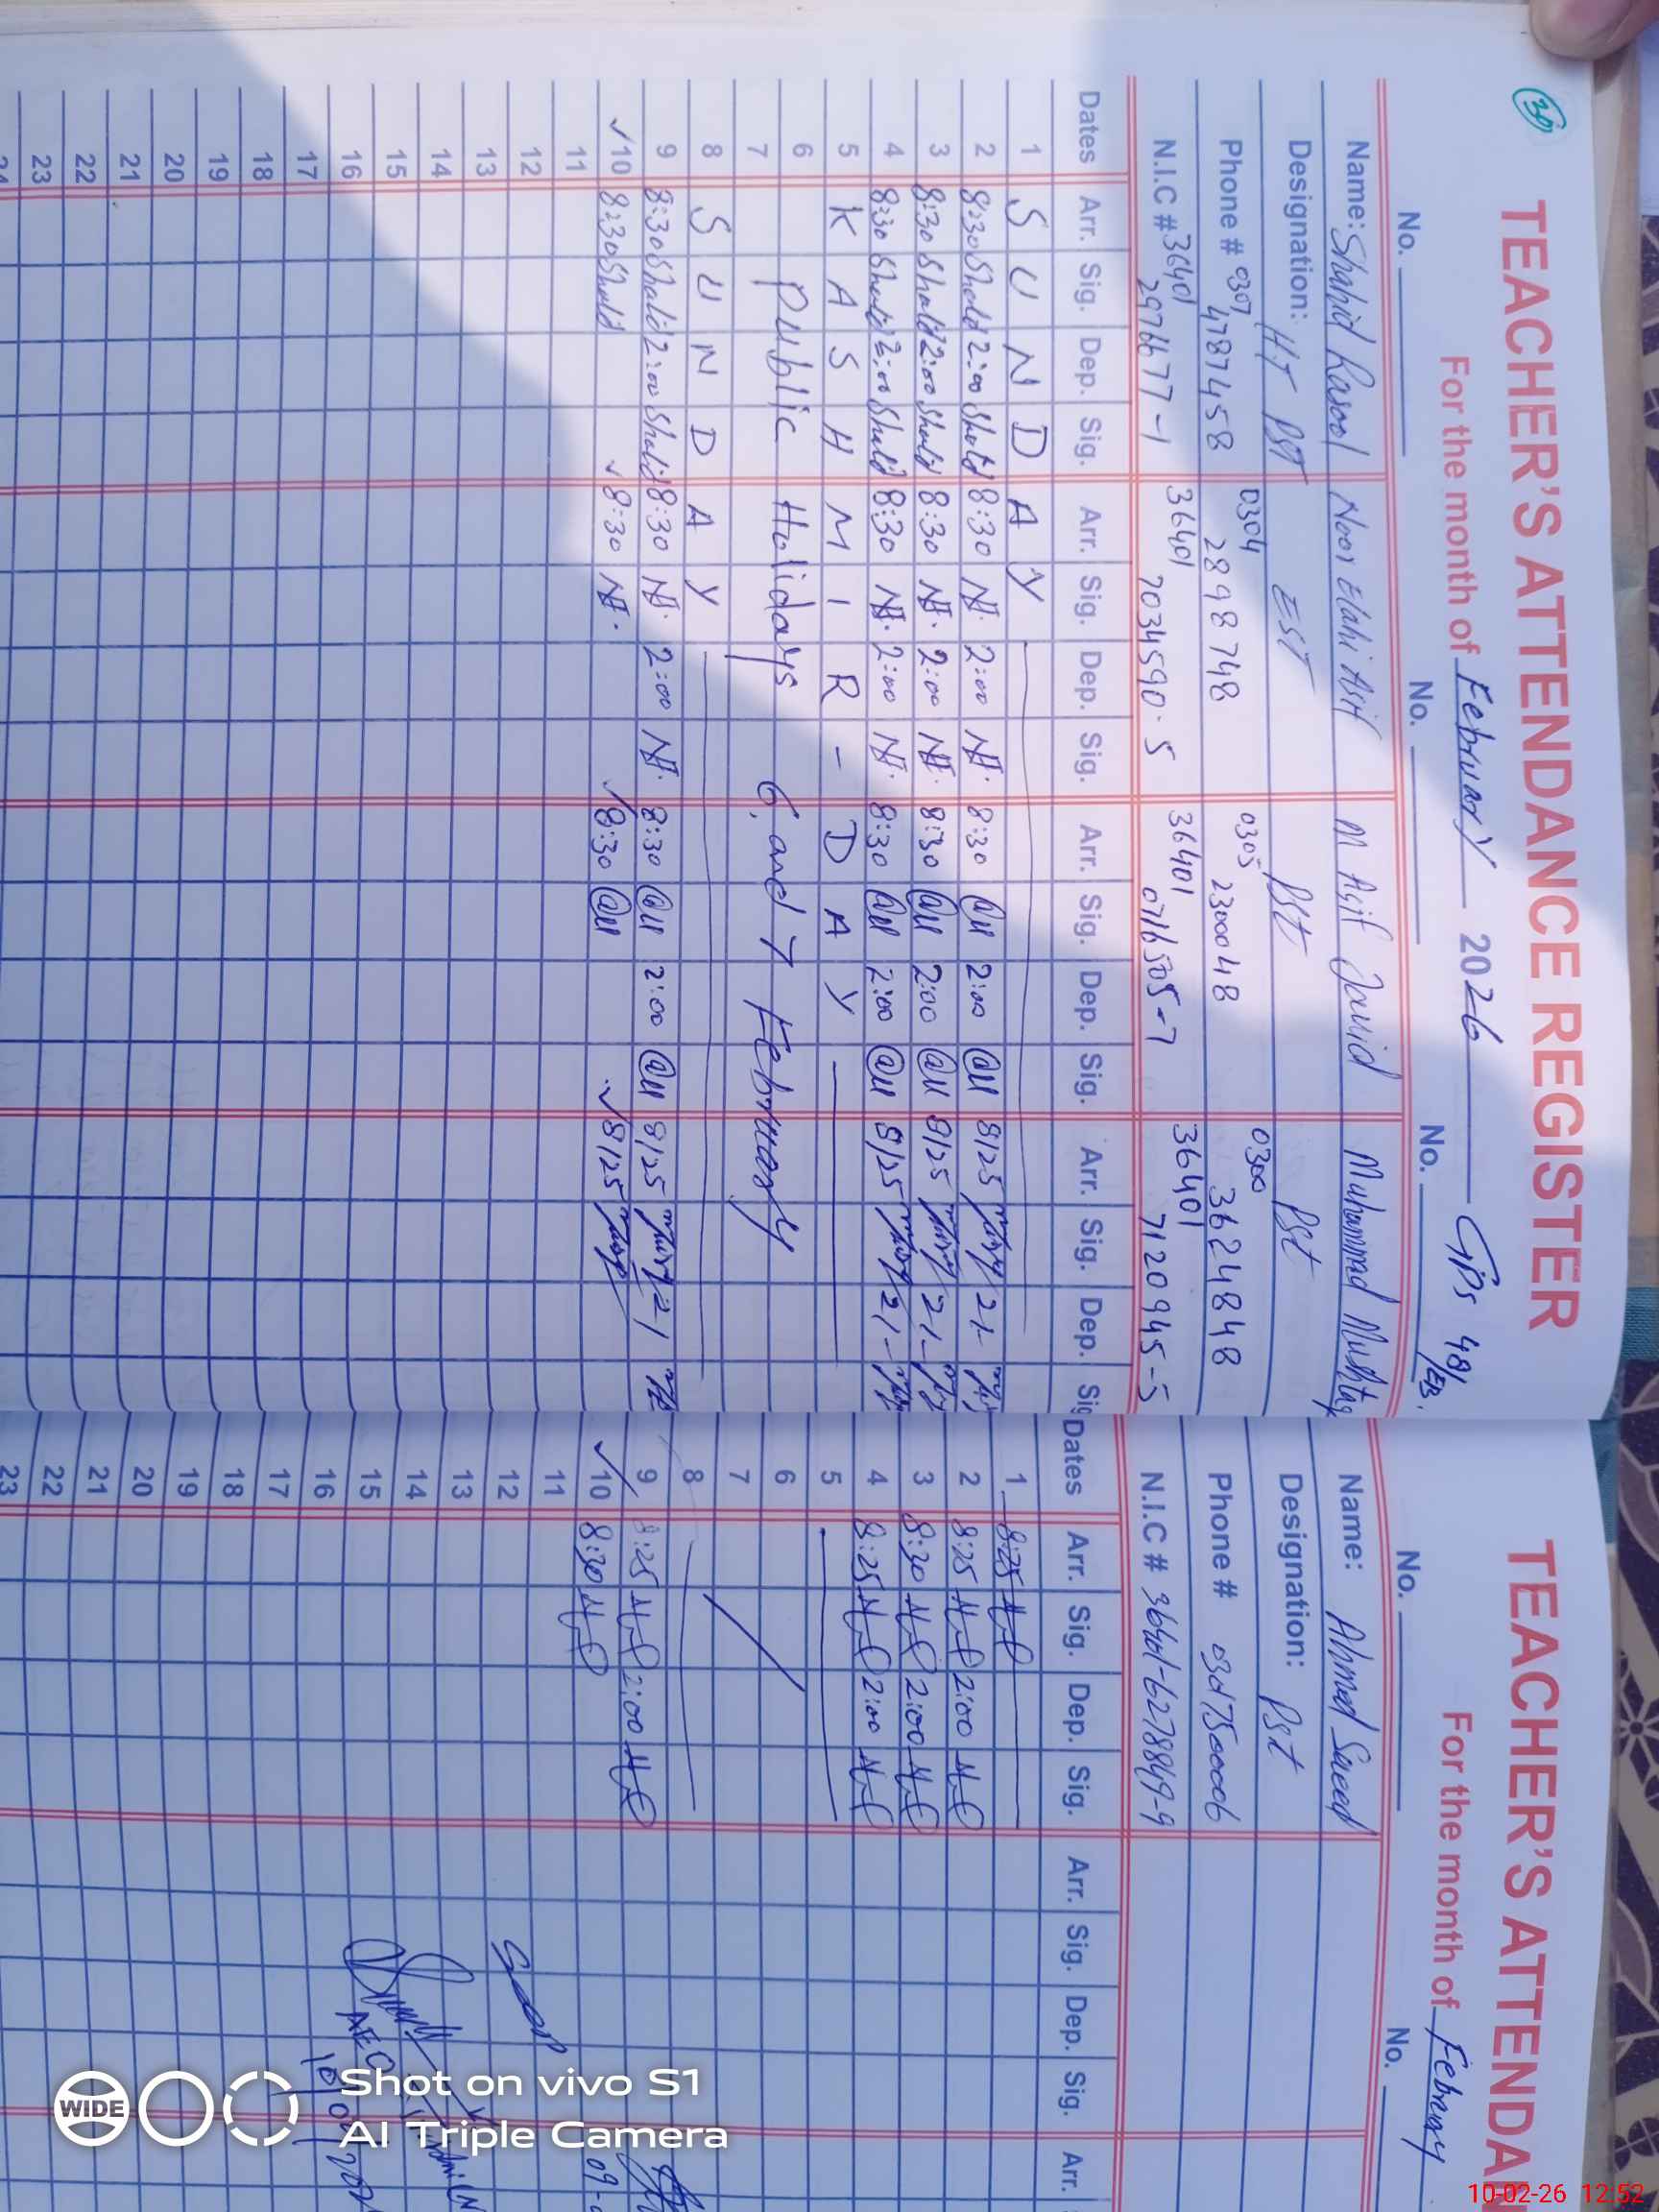 30
TEACHER'S ATTENDANCE REGISTER
For the month of February 2026 GPS 48/EB.
No. No. No.
Name: Shahid Rasool Noor Elahi Asif M Asif Javid Muhammad Mushtaq
Designation: HT PST EST Pst Pst
Phone # 0307 4787458 0304 2898748 0305 2300048 0300 3624848
N.I.C # 36401 2976677-1 36401 7034590-5 36401 0716505-7 36401 7120945-5
Dates Arr. Sig. Dep. Sig. Arr. Sig. Dep. Sig. Arr. Sig. Dep. Sig. Arr. Sig. Dep. Sig
1 S U N D A Y
2 8:30 Shahid 2:00 Shahid 8:30 2:00 8:30 2:00 8/25 21-
3 8:30 Shahid 2:00 Shahid 8:30 2:00 8:30 2:00 8/25 21-
4 8:30 Shahid 2:00 Shahid 8:30 2:00 8:30 2:00 8/25 21-
5 K A S H M I R - D A Y
6 Public Holidays 6, and 7 February
7
8 S U N D A Y
9 8:30 Shahid 2:00 Shahid 8:30 2:00 8:30 2:00 8/25 21
10 8:30 Shahid 8:30 8:30 8/25
11
12
13
14
15
16
17
18
19
20
21
22
23
24
TEACHER'S ATTENDAN
For the month of February
No. No.
Name: Ahmad Saeed
Designation: Pst
Phone # 03017500006
N.I.C # 36401-6278849-9
Dates Arr. Sig. Dep. Sig. Arr. Sig. Dep. Sig. Arr.
1 8:25
2 8:25 2:00
3 8:30 2:00
4 8:25 2:00
5
6
7
8
9 8:25 2:00
10 8:30 09-
11
12
13
14
15
16
17
18
19
20
21
22
23
AEO
WIDE
Shot on vivo S1
AI Triple Camera
10-02-26 12:52